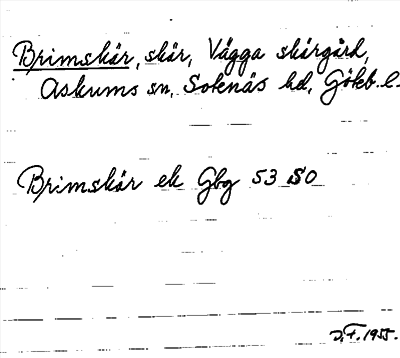 Brimskär, skär, Vägga skärgård,
Askums sn, Sotenäs hd, Göteb. l.
Brimskär ek Gbg 53 SO
D.F. 1955.